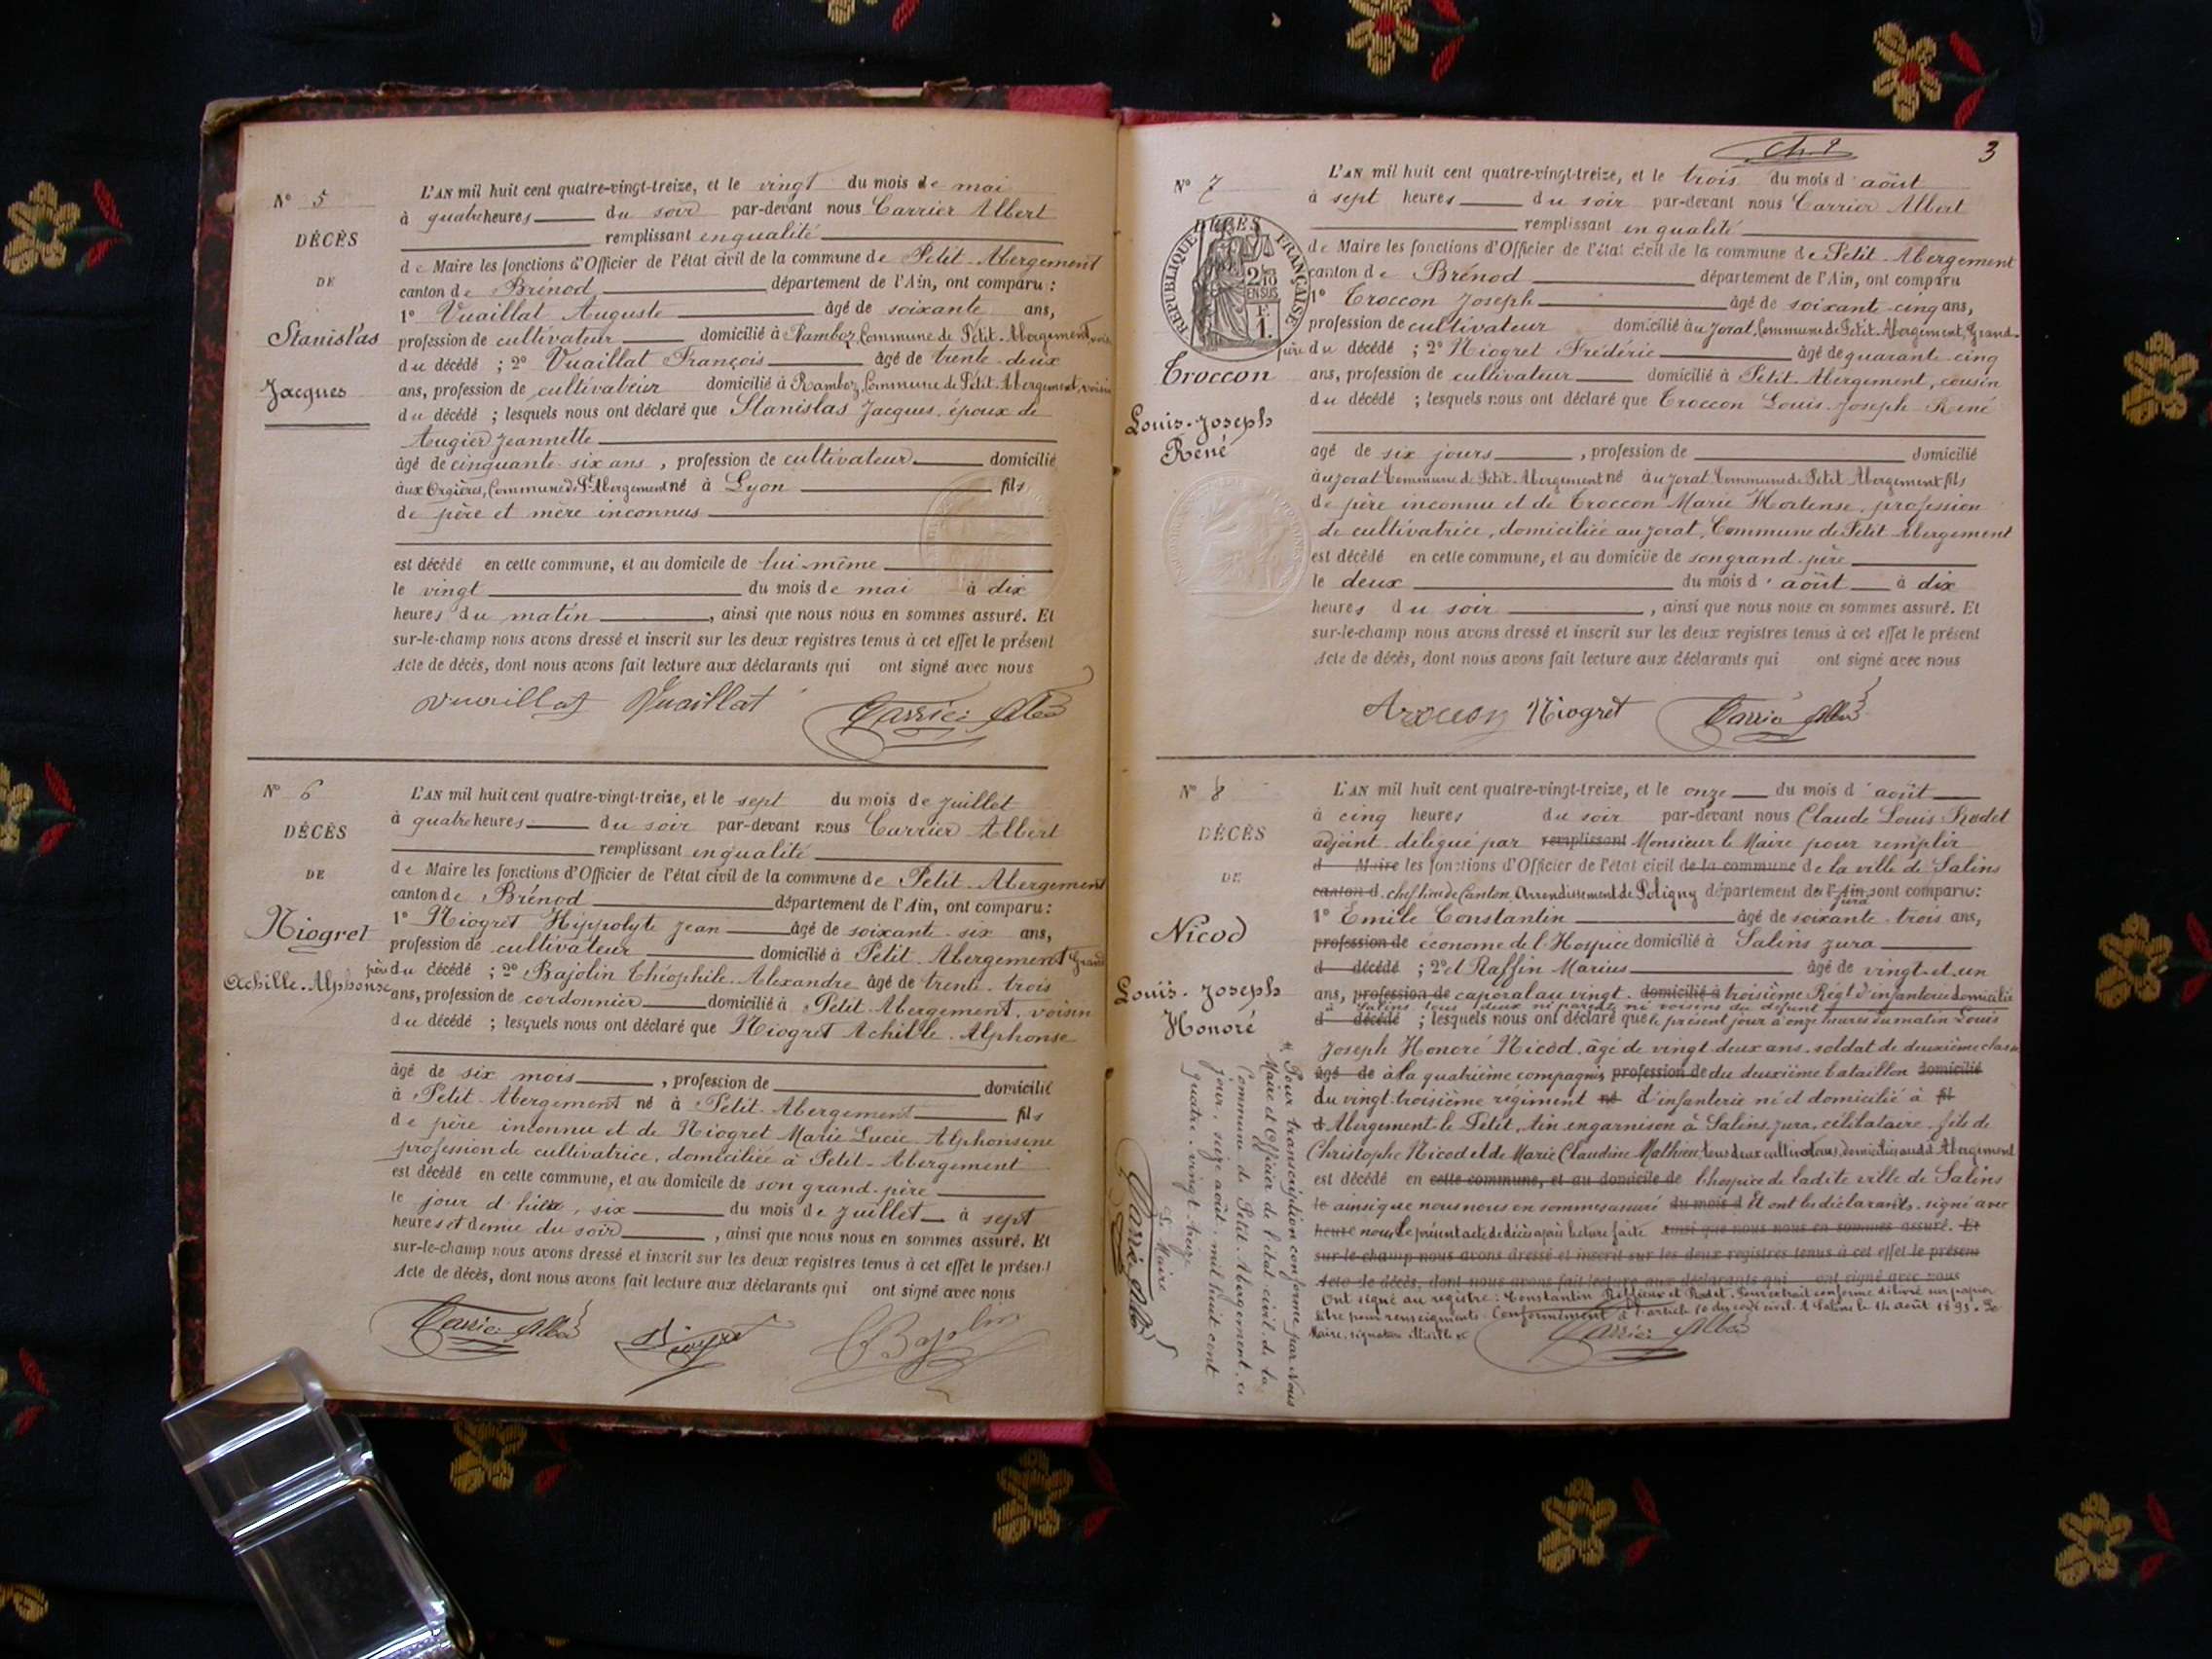 N° 5
DÉCÈS
DE
Stanislas
Jacques
L'AN mil huit cent quatre-vingt-treize, et le vingt du mois de mai
à quatre heures du soir par-devant nous Carrier Albert
remplissant en qualité
de Maire les fonctions d'Officier de l'état civil de la commune de Petit-Abergement
canton de Brénod département de l'Ain, ont comparu :
1° Vuaillat Auguste âgé de soixante ans,
profession de cultivateur domicilié à Ramboz, Commune de Petit-Abergement, voisin
du décédé ; 2° Vuaillat François âgé de trente-deux
ans, profession de cultivateur domicilié à Ramboz, Commune de Petit-Abergement, voisin
du décédé ; lesquels nous ont déclaré que Stanislas Jacques, époux de
Augier Jeannette
âgé de cinquante-six ans, profession de cultivateur domicilié
aux Orgières, Commune de Pt Abergement né à Lyon fils
de père et mère inconnus
est décédé en cette commune, et au domicile de lui-même
le vingt du mois de mai à dix
heures du matin, ainsi que nous nous en sommes assuré. Et
sur-le-champ nous avons dressé et inscrit sur les deux registres tenus à cet effet le présent
Acte de décès, dont nous avons fait lecture aux déclarants qui ont signé avec nous
Vuaillat Vuaillat Carrier Albert
N° 6
DÉCÈS
DE
Niogret
Achille-Alphonse
L'AN mil huit cent quatre-vingt-treize, et le sept du mois de juillet
à quatre heures du soir par-devant nous Carrier Albert
remplissant en qualité
de Maire les fonctions d'Officier de l'état civil de la commune de Petit-Abergement
canton de Brénod département de l'Ain, ont comparu :
1° Niogret Hippolyte Jean âgé de soixante-six ans,
profession de cultivateur domicilié à Petit-Abergement Grand
père du décédé ; 2° Bajolin Théophile-Alexandre âgé de trente-trois
ans, profession de cordonnier domicilié à Petit-Abergement, voisin
du décédé ; lesquels nous ont déclaré que Niogret Achille-Alphonse
âgé de six mois, profession de domicilié
à Petit-Abergement né à Petit-Abergement fils
de père inconnu et de Niogret Marie Lucie-Alphonsine
profession de cultivatrice, domiciliée à Petit-Abergement
est décédé en cette commune, et au domicile de son grand-père
le jour d'hier, six du mois de juillet à sept
heures et demie du soir, ainsi que nous nous en sommes assuré. Et
sur-le-champ nous avons dressé et inscrit sur les deux registres tenus à cet effet le présent
Acte de décès, dont nous avons fait lecture aux déclarants qui ont signé avec nous
Carrier Albert Niogret Bajolin
3
N° 7
DÉCÈS
RÉPUBLIQUE FRANÇAISE
2/10 EN SUS
F. 1.
Troccon
Louis-Joseph
René
L'AN mil huit cent quatre-vingt-treize, et le trois du mois d'août
à sept heures du soir par-devant nous Carrier Albert
remplissant en qualité
de Maire les fonctions d'Officier de l'état civil de la commune de Petit-Abergement
canton de Brénod département de l'Ain, ont comparu
1° Troccon Joseph âgé de soixante-cinq ans,
profession de cultivateur domicilié au Jorat, Commune de Petit-Abergement, Grand-
père du décédé ; 2° Niogret Frédéric âgé de quarante-cinq
ans, profession de cultivateur domicilié à Petit-Abergement, cousin
du décédé ; lesquels nous ont déclaré que Troccon Louis-Joseph-René
âgé de six jours, profession de domicilié
au Jorat Commune de Petit-Abergement né au Jorat Commune de Petit Abergement fils
de père inconnu et de Troccon Marie Hortense, profession
de cultivatrice, domiciliée au Jorat, Commune de Petit-Abergement
est décédé en cette commune, et au domicile de son grand-père
le deux du mois d'août à dix
heures du soir, ainsi que nous nous en sommes assuré. Et
sur-le-champ nous avons dressé et inscrit sur les deux registres tenus à cet effet le présent
Acte de décès, dont nous avons fait lecture aux déclarants qui ont signé avec nous
Niogret Carrier Albert
N° 8
DÉCÈS
DE
Nicod
Louis-Joseph
Honoré
L'AN mil huit cent quatre-vingt-treize, et le onze du mois d'août
à cinq heures du soir par-devant nous Claude Louis Rodet
adjoint délégué par remplissant Monsieur le Maire pour remplir
d Maire les fonctions d'Officier de l'état civil de la commune de la ville de Salins
canton d chef lieu de Canton Arrondissement de Poligny département de l'Ain, Jura ont comparu :
1° Emile Constantin âgé de soixante-trois ans,
profession de économe de l'Hospice domicilié à Salins Jura
d décédé ; 2° et Raffin Marius âgé de vingt-et-un
ans, profession de caporal au vingt- domicilié à troisième Régt d'infanterie domicilié
à Salins tous deux ni parents ni voisins du défunt
d décédé ; lesquels nous ont déclaré que le présent jour à onze heures du matin Louis
Joseph Honoré Nicod, âgé de vingt-deux ans, soldat de deuxième classe
âgé de à la quatrième compagnie profession de du deuxième bataillon domicilié
du vingt-troisième régiment né d'infanterie né et domicilié à fil
d Abergement-le-Petit, Ain en garnison à Salins, Jura, célibataire, fils de
Christophe Nicod et de Marie Claudine Mathieu, tous deux cultivateurs, domiciliés audit Abergement
est décédé en cette commune, et au domicile de l'hospice de ladite ville de Salins
le ainsi que nous nous en sommes assuré du mois d Et ont les déclarants, signé avec
heure nous le présent acte de décès après lecture faite ainsi que nous nous en sommes assuré. Et
sur-le-champ nous avons dressé et inscrit sur les deux registres tenus à cet effet le présent
Acte de décès, dont nous avons fait lecture aux déclarants qui ont signé avec nous
Ont signé au registre : Constantin et Rodet. Pour extrait conforme délivré sur papier
libre pour renseignements Conformément à l'article 80 du code civil. A Salins le 14 août 1893. Le
Maire, signature illisible
Carrier Albert
Pour transcription conforme par Nous
Maire et Officier de l'état civil de la
Commune de Petit-Abergement, ce
jour, seize août, mil huit cent
quatre-vingt-treize
Le Maire
Carrier Albert